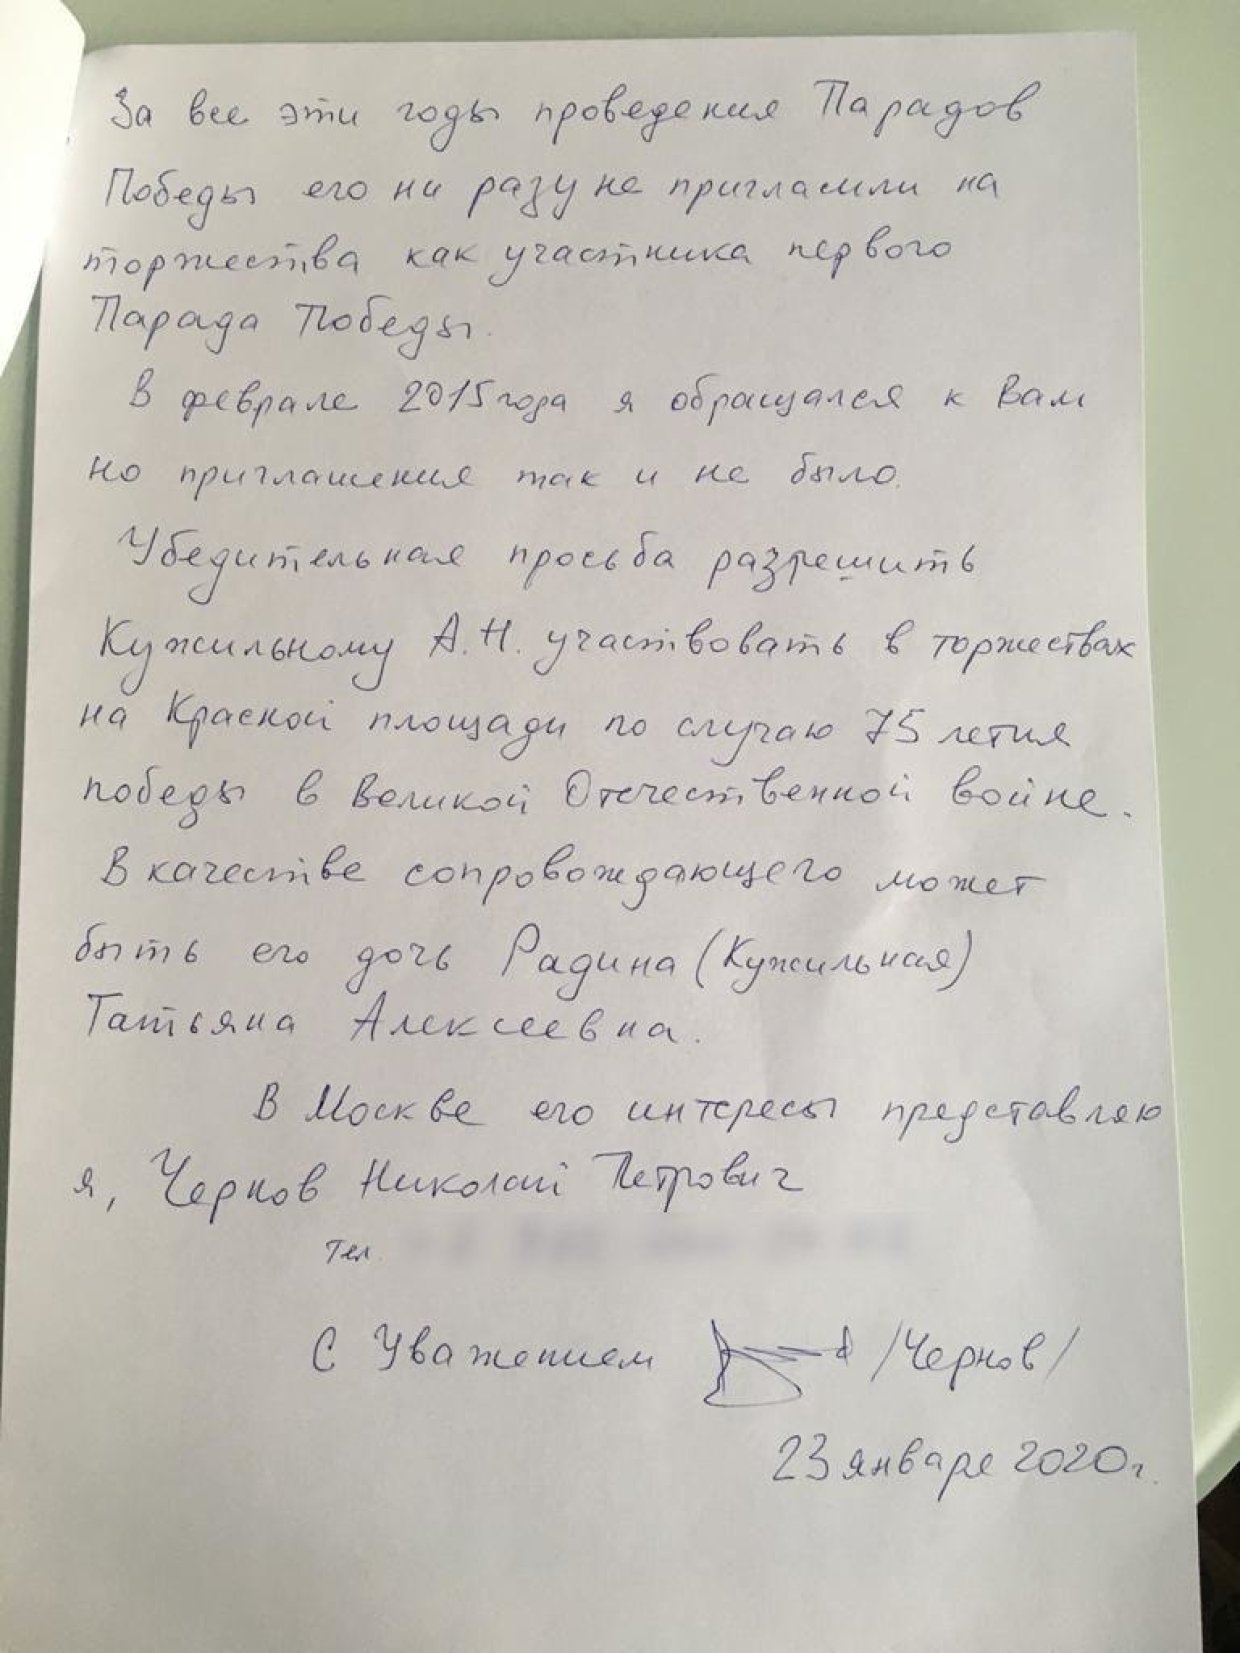 За все эти годы проведения Парадов
Победы его ни разу не пригласили на
торжества как участника первого
Парада Победы.
В феврале 2015 года я обращался к Вам
но приглашения так и не было.
Убедительная просьба разрешить
Кужильному А.Н. участвовать в торжествах
на Красной площади по случаю 75 летия
победы в Великой Отечественной войне.
В качестве сопровождающего может
быть его дочь Радина (Кужильная)
Татьяна Алексеевна.
В Москве его интересы представляю
я, Чернов Николай Петрович
тел
С Уважением /Чернов/
23 январе 2020г.